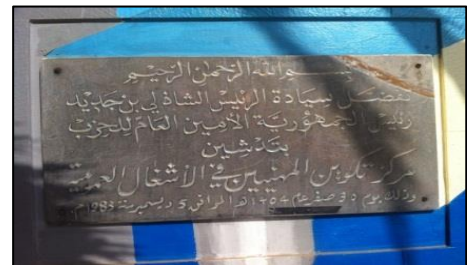 بسم الله الرحمن الرحيم
تفضل سيادة الرئيس الشاذلي بن جديد
رئيس الجمهورية الأمين العام للحزب
بتدشين
مركز تكوين المهنيين في الأشغال العمومية
وذلك يوم 30 صفر عام 1404 هـ الموافق 5 ديسمبر سنة 1983 م